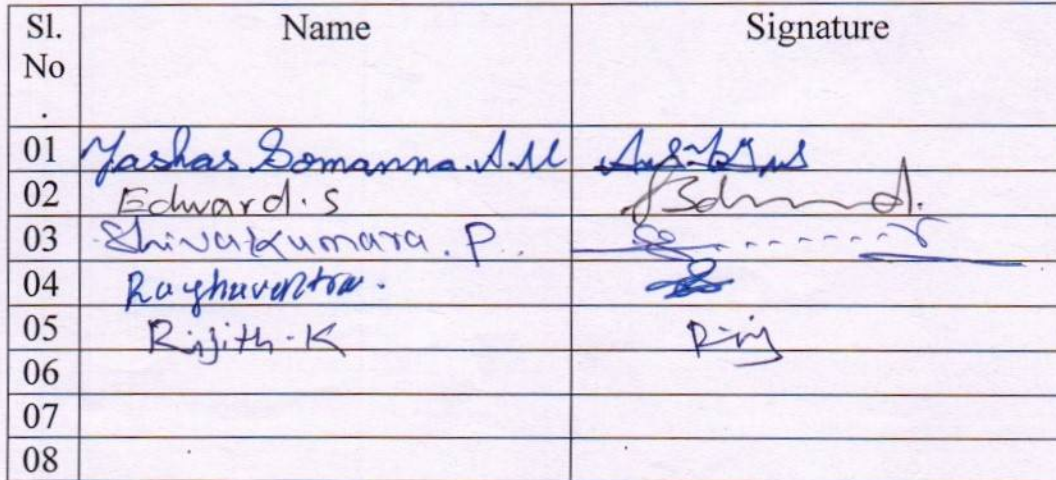 Sl. No . Name Signature
01 Yashas Somanna. A.U
02 Edward. S
03 Shivakumara. P.
04 Raghavendra.
05 Rijith. K Rij
06
07
08